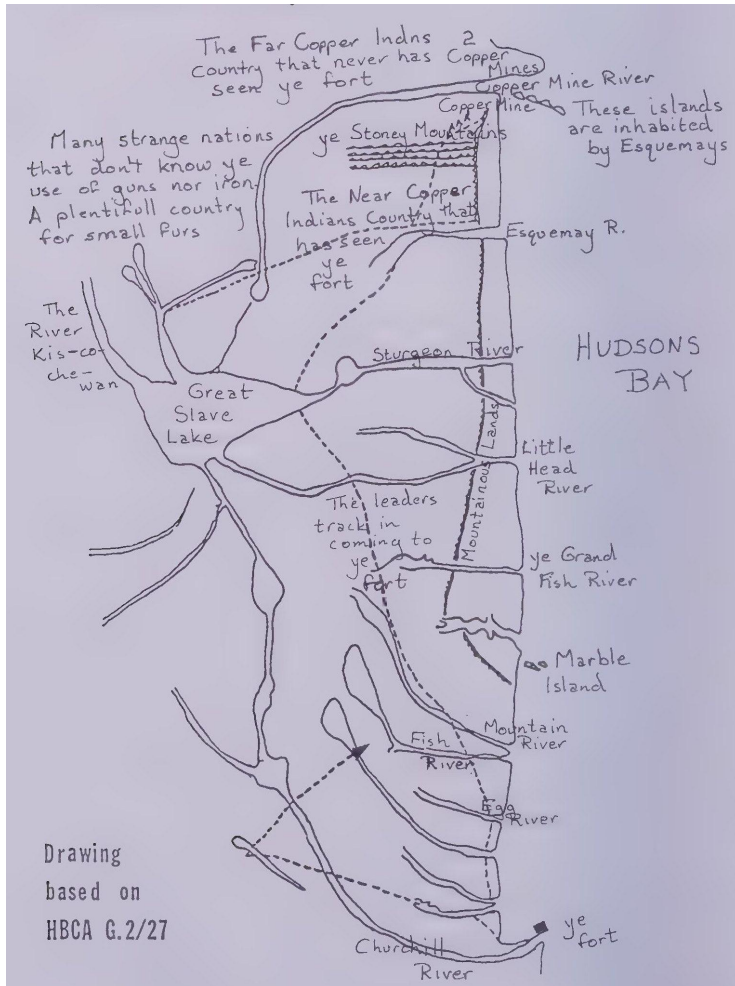 The Far Copper Indns
Country that never has
seen ye fort
2
Copper
Mines
Copper Mine River
Copper Mine
These islands
are inhabited
by Esquemays
Many strange nations
that don't know ye
use of guns nor iron.
A plentifull country
for small furs
ye Stoney Mountains
The Near Copper
Indians Country that
has seen
ye
fort
Esquemay R.
The
River
Kis-co-
che-
wan
Sturgeon River
HUDSONS
BAY
Great
Slave
Lake
Mountainous Lands
Little
Head
River
The leaders
track in
coming to
ye
fort
ye Grand
Fish River
Marble
Island
Mountain
River
Fish
River
Egg
River
Drawing
based on
HBCA G.2/27
ye
fort
Churchill
River